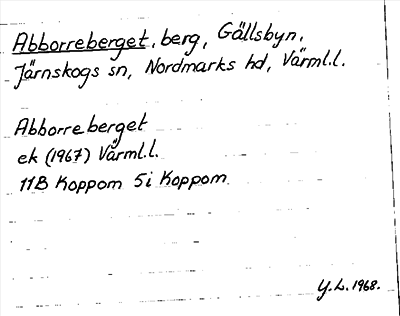 Abborreberget, berg, Gällsbyn,
Järnskogs sn, Nordmarks hd, Värml.l.
Abborreberget
ek (1967) Värml.l.
11B Koppom 5i Koppom
Y.L. 1968.